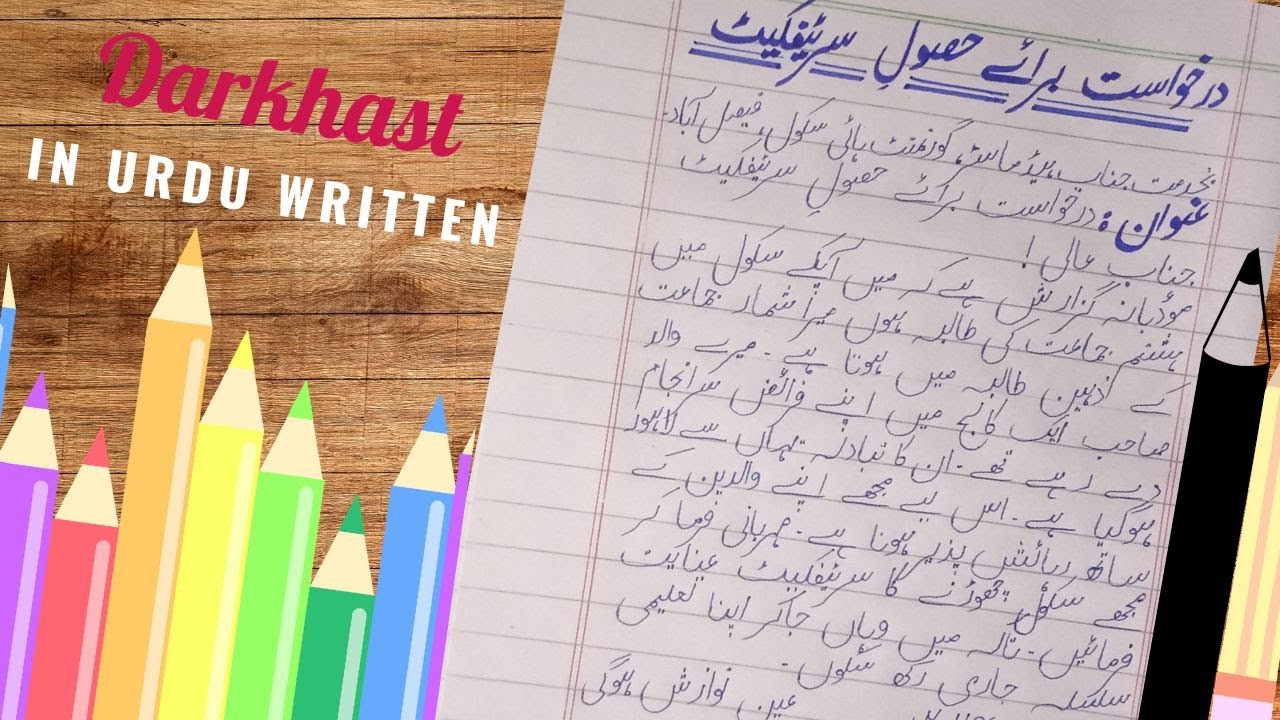 Darkhast
IN URDU WRITTEN
درخواست برائے حصولِ سرٹیفکیٹ
بخدمت جناب ہیڈ ماسٹر، گورنمنٹ ہائی سکول، فیصل آباد۔
عنوان: درخواست برائے حصولِ سرٹیفکیٹ
جنابِ عالی!
مؤدبانہ گزارش ہے کہ میں آپکے سکول میں
ہشتم جماعت کی طالبہ ہوں میرا شمار جماعت
کے ذہین طالبہ میں ہوتا ہے۔ میرے والد
صاحب ایک کالج میں اپنے فرائض سرانجام
دے رہے تھے۔ ان کا تبادلہ یہاں سے لاہور
ہوگیا ہے۔ اس لیے مجھے اپنے والدین کے
ساتھ رہائش پذیر ہونا ہے۔ مہربانی فرما کر
مجھے سکول چھوڑنے کا سرٹیفکیٹ عنایت
فرمائیں۔ تاکہ میں وہاں جاکر اپنا تعلیمی
سلسلہ جاری رکھ سکوں۔
عین نوازش ہوگی